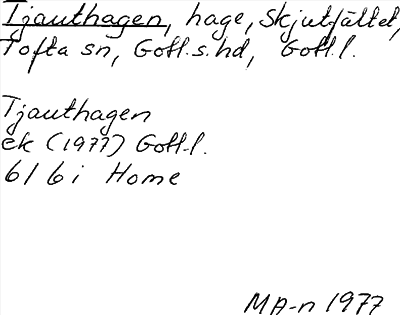 Tjauthagen, hage, Skjutfältet,
Tofta sn, Gotl.s.hd, Gotl.l.
Tjauthagen
ek (1977) Gotl.l.
6I 6i Home
MA-n 1977